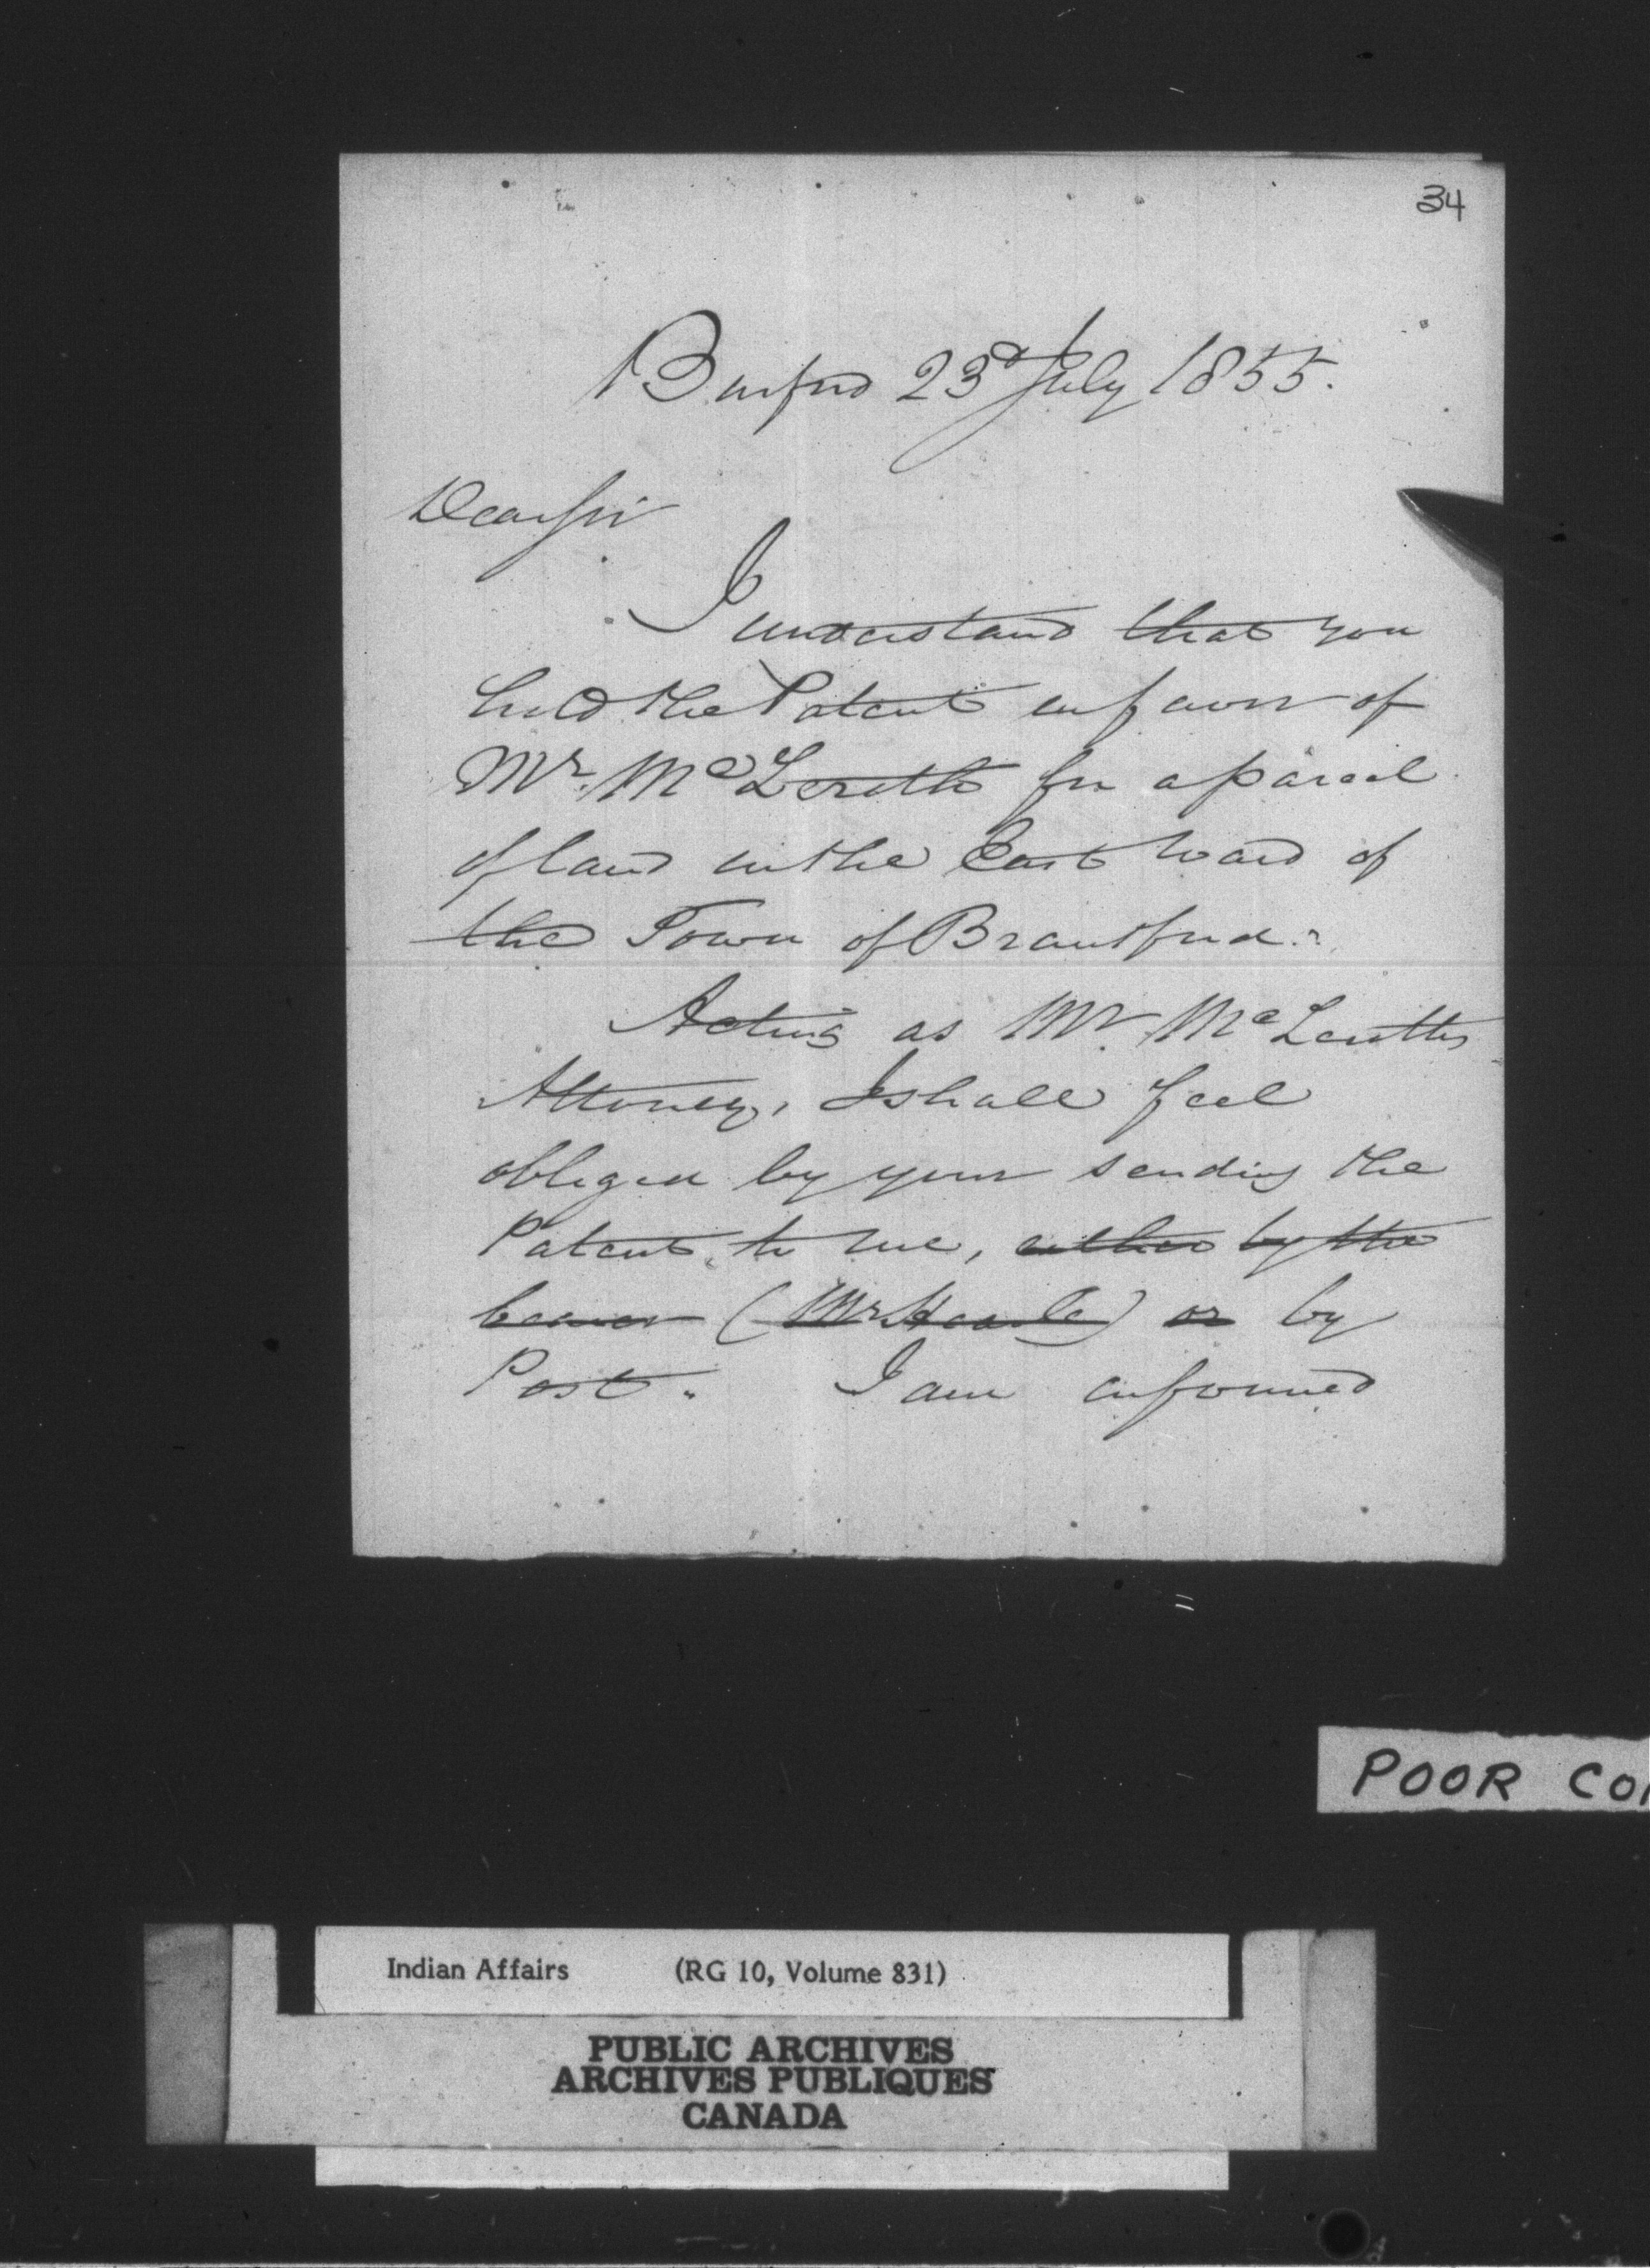 34
Burford 23d July 1855.
Dear Sir
I understand that you
hold the Patent in favor of
Mr. Mc for a parcel
of land in the East Ward of
the Town of Brantford.
Acting as Mr. Mc
Attorney, I shall feel
obliged by your sending the
Patent, to me, either by the
bearer (Mr ) or by
Post. I am informed
POOR CO
Indian Affairs (RG 10, Volume 831)
PUBLIC ARCHIVES
ARCHIVES PUBLIQUES
CANADA